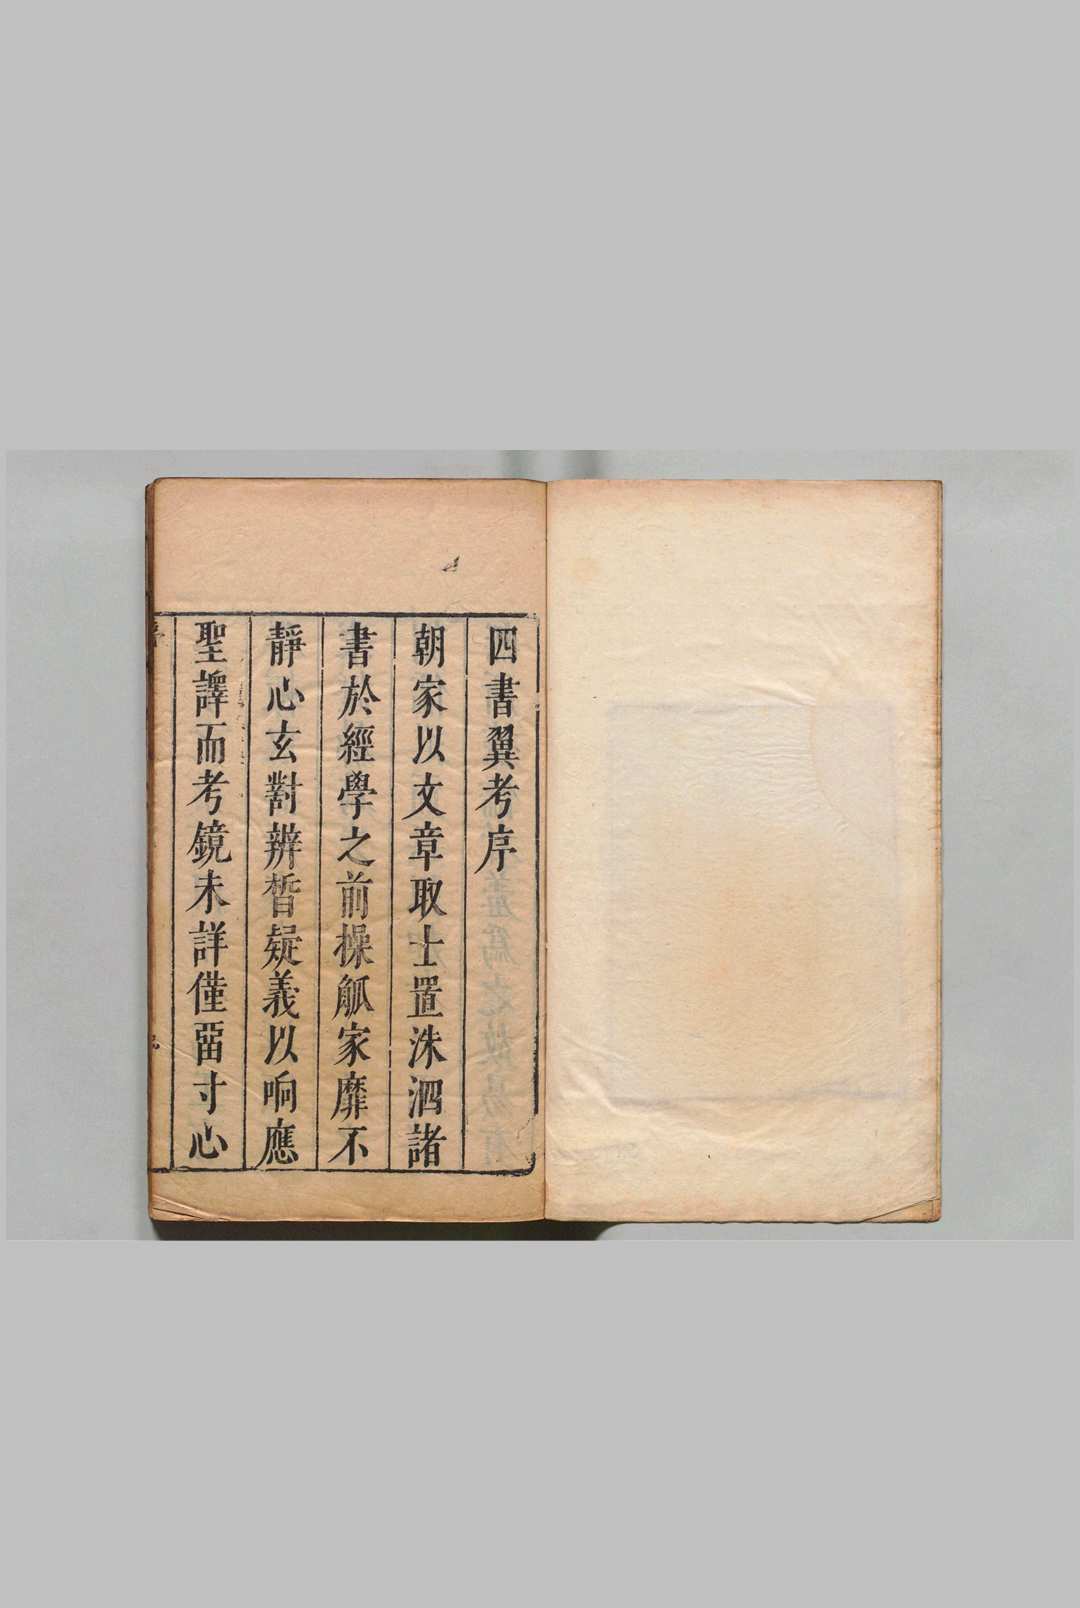 四書翼考序
朝家以文章取士置洙泗諸
書於經學之前操觚家靡不
靜心玄對辨晳疑義以响應
聖譯而考鏡未詳僅畱寸心